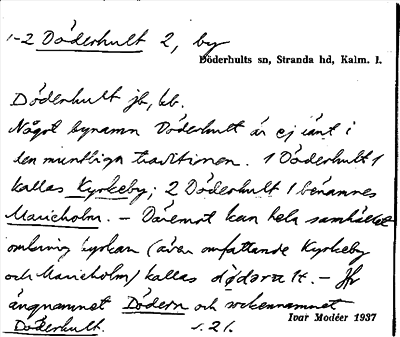 1-2 Döderhult 2, by
Döderhults sn, Stranda hd, Kalm. l.
Döderhult jb, kb.
Något bynamn Döderhult är ej känt i
den muntliga traditionen. 1 Döderhult 1
kallas Kyrkeby; 2 Döderhult 1 benämnes
Marieholm. – Däremot kan hela samhället
omkring kyrkan (även omfattande Kyrkeby
och Marieholm) kallas
ängnamnet Dödern och sockennamnet
Döderhult.
Ivar Modéer 1937